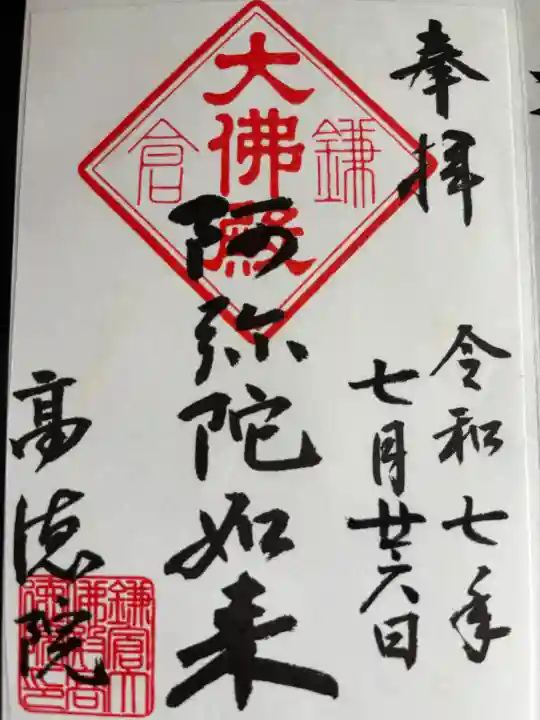 奉拝
令和七年
七月廿六日
鎌倉
大佛殿
阿弥陀如来
高徳院